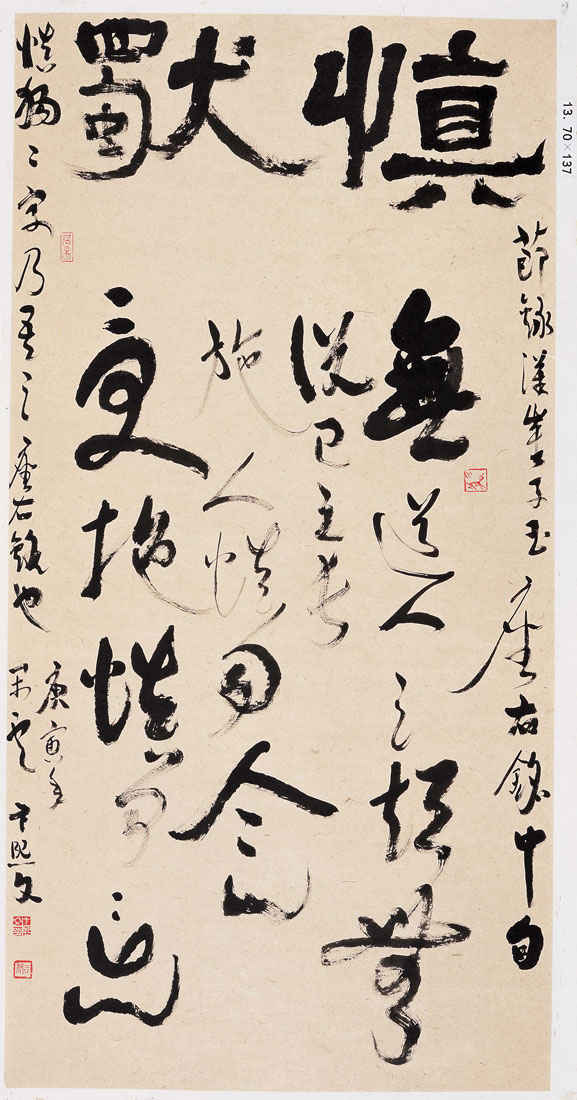 慎獨
節錄漢崔子玉座右銘中句
無道人之短無
說己之長
施人慎勿念
受施慎勿忘
慎獨二字乃吾之座右銘也
庚寅年
13. 70×137